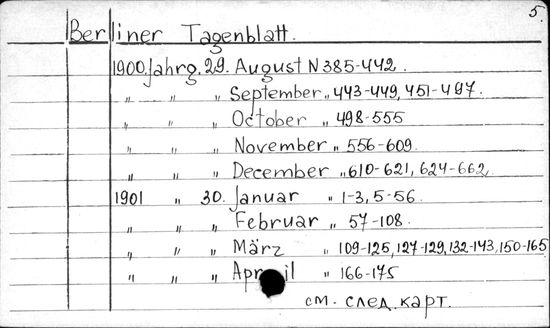 5.
Berliner Tagenblatt.
1900. Jahrg. 29. August N 385-442.
„ „ „ September „ 443-449, 451-497.
„ „ „ October „ 498-555
„ „ „ November „ 556-609.
„ „ „ December „ 610-621, 624-662.
1901 „ 30. Januar „ 1-3, 5-56.
„ „ „ Februar „ 57-108.
„ „ „ März „ 109-125, 127-129, 132-143, 150-165
„ „ „ April „ 166-175
см. след. карт.